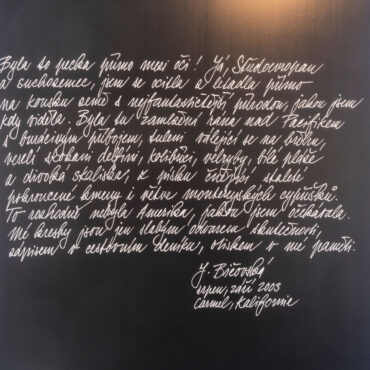 Byla to pecka přímo mezi oči! Já, Středoevropan
a suchozemec, jsem se ocitla z letadla přímo
na kousku země s nejfantastičtější přírodou, jakou jsem
kdy viděla. Byla tu zamlžená rána nad Pacifikem
s burácivým příbojem, tuleni válející se na břehu,
veselí skákaví delfíni, kolibříci, velryby, bílé pláže
a divoká skaliska, z písku čnějící staleté
pokroucené kmeny i větve montereyských cypřišů.
To rozhodně nebyla Amerika, jakou jsem očekávala.
Mé kresby jsou jen slabým odvarem skutečnosti,
zápisem v cestovním deníku, otiskem v mé paměti.
J. Bičovská
srpen, září 2003
Carmel, Kalifornie